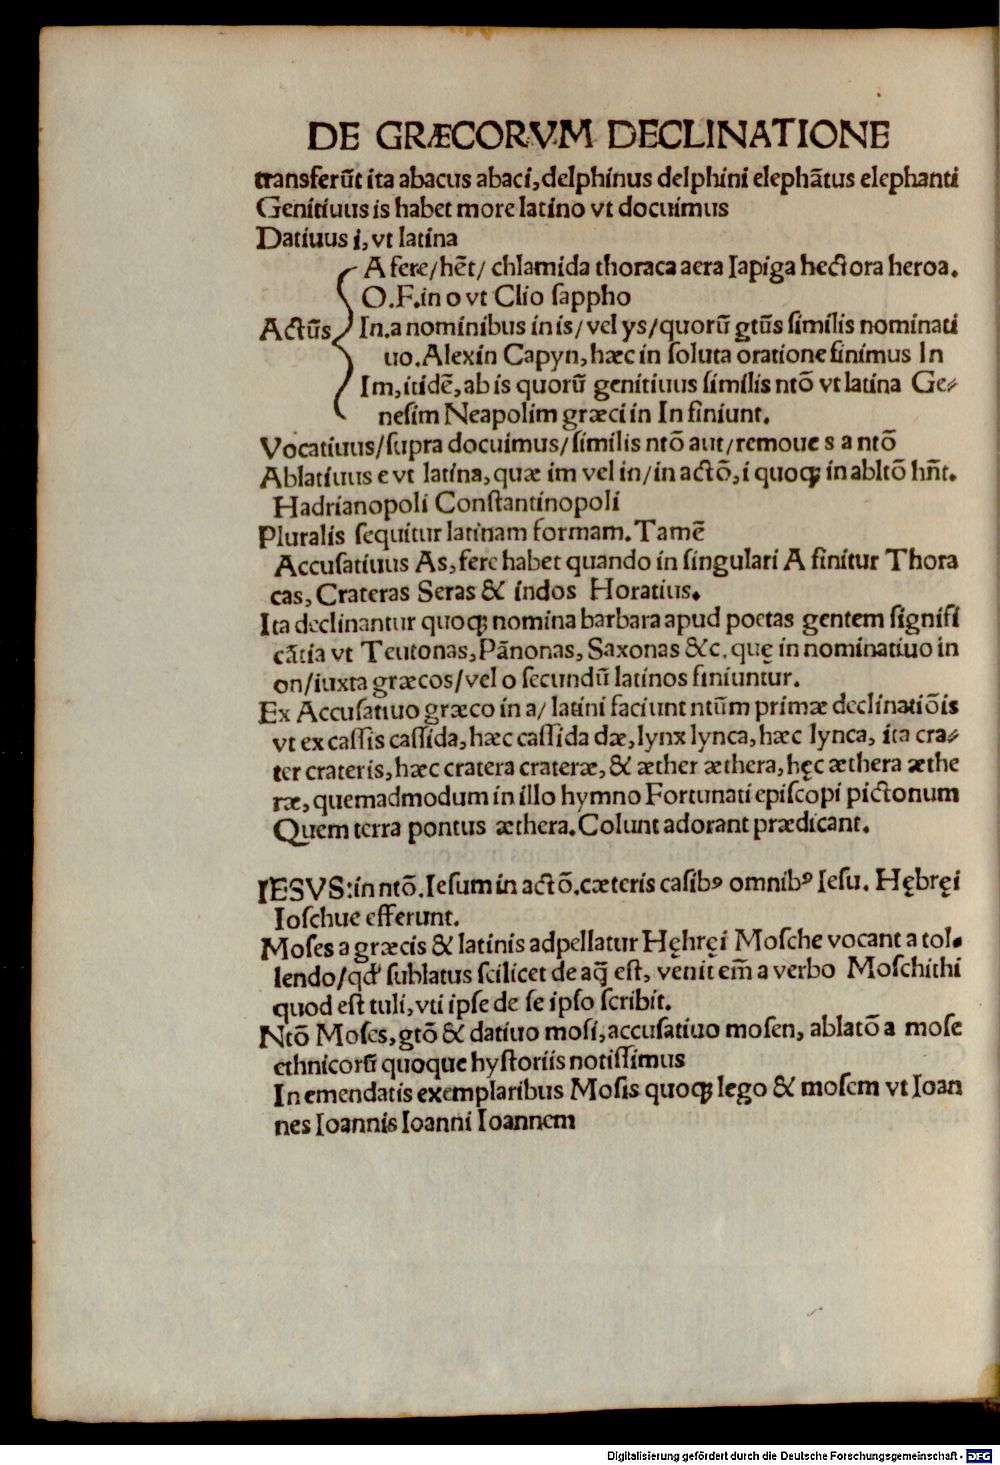 DE GRÆCORVM DECLINATIONE
transferūt ita abacus abaci, delphinus delphini elephātus elephanti
Genitiuus is habet more latino vt docuimus
Datiuus i, vt latina
A fere/hēt/ chlamida thoraca aera Iapiga hectora heroa.
O.F.in o vt Clio ſappho
Actūs In.a nominibus in is/vel ys/quorū gtūs ſimilis nominati
uo.Alexin Capyn, hæc in ſoluta oratione finimus In
Im, itidē, ab is quorū genitiuus ſimilis ntō vt latina Ge⸗
neſim Neapolim græci in In finiunt.
Vocatiuus/ſupra docuimus/ſimilis ntō aut/remoue s a ntō
Ablatiuus e vt latina, quæ im vel in/in actō, i quoq; in abltō hn̄t.
Hadrianopoli Conſtantinopoli
Pluralis ſequitur latinam formam. Tamē
Accuſatiuus As, fere habet quando in ſingulari A finitur Thora
cas, Crateras Seras & indos Horatius.
Ita declinantur quoq; nomina barbara apud poetas gentem ſignifi
cātia vt Teutonas, Pānonas, Saxonas &c. quę in nominatiuo in
on/iuxta græcos/vel o ſecundū latinos finiuntur.
Ex Accuſatiuo græco in a/ latini faciunt ntūm primæ declinatiōis
vt ex caſſis caſſida, hæc caſſida dæ, lynx lynca, hæc lynca, ita cra⸗
ter crateris, hæc cratera crateræ, & æther æthera, hęc æthera æthe
ræ, quemadmodum in illo hymno Fortunati epiſcopi pictonum
Quem terra pontus æthera. Colunt adorant prædicant.
IESVS: in ntō. Ieſum in actō. cæteris caſibꝰ omnibꝰ Ieſu. Hębręi
Ioſchue efferunt.
Moſes a græcis & latinis adpellatur Hęhręi Moſche vocant a tol.
lendo/qd' ſublatus ſcilicet de aq̄ eſt, venit em̄ a verbo Moſchithi
quod eſt tuli, vti ipſe de ſe ipſo ſcribit.
Ntō Moſes, gtō & datiuo moſi, accuſatiuo moſen, ablatō a moſe
ethnicorū quoque hyſtoriis notiſſimus
In emendatis exemplaribus Moſis quoq; lego & moſem vt Ioan
nes Ioannis Ioanni Ioannem
Digitalisierung gefördert durch die Deutsche Forschungsgemeinschaft - DFG